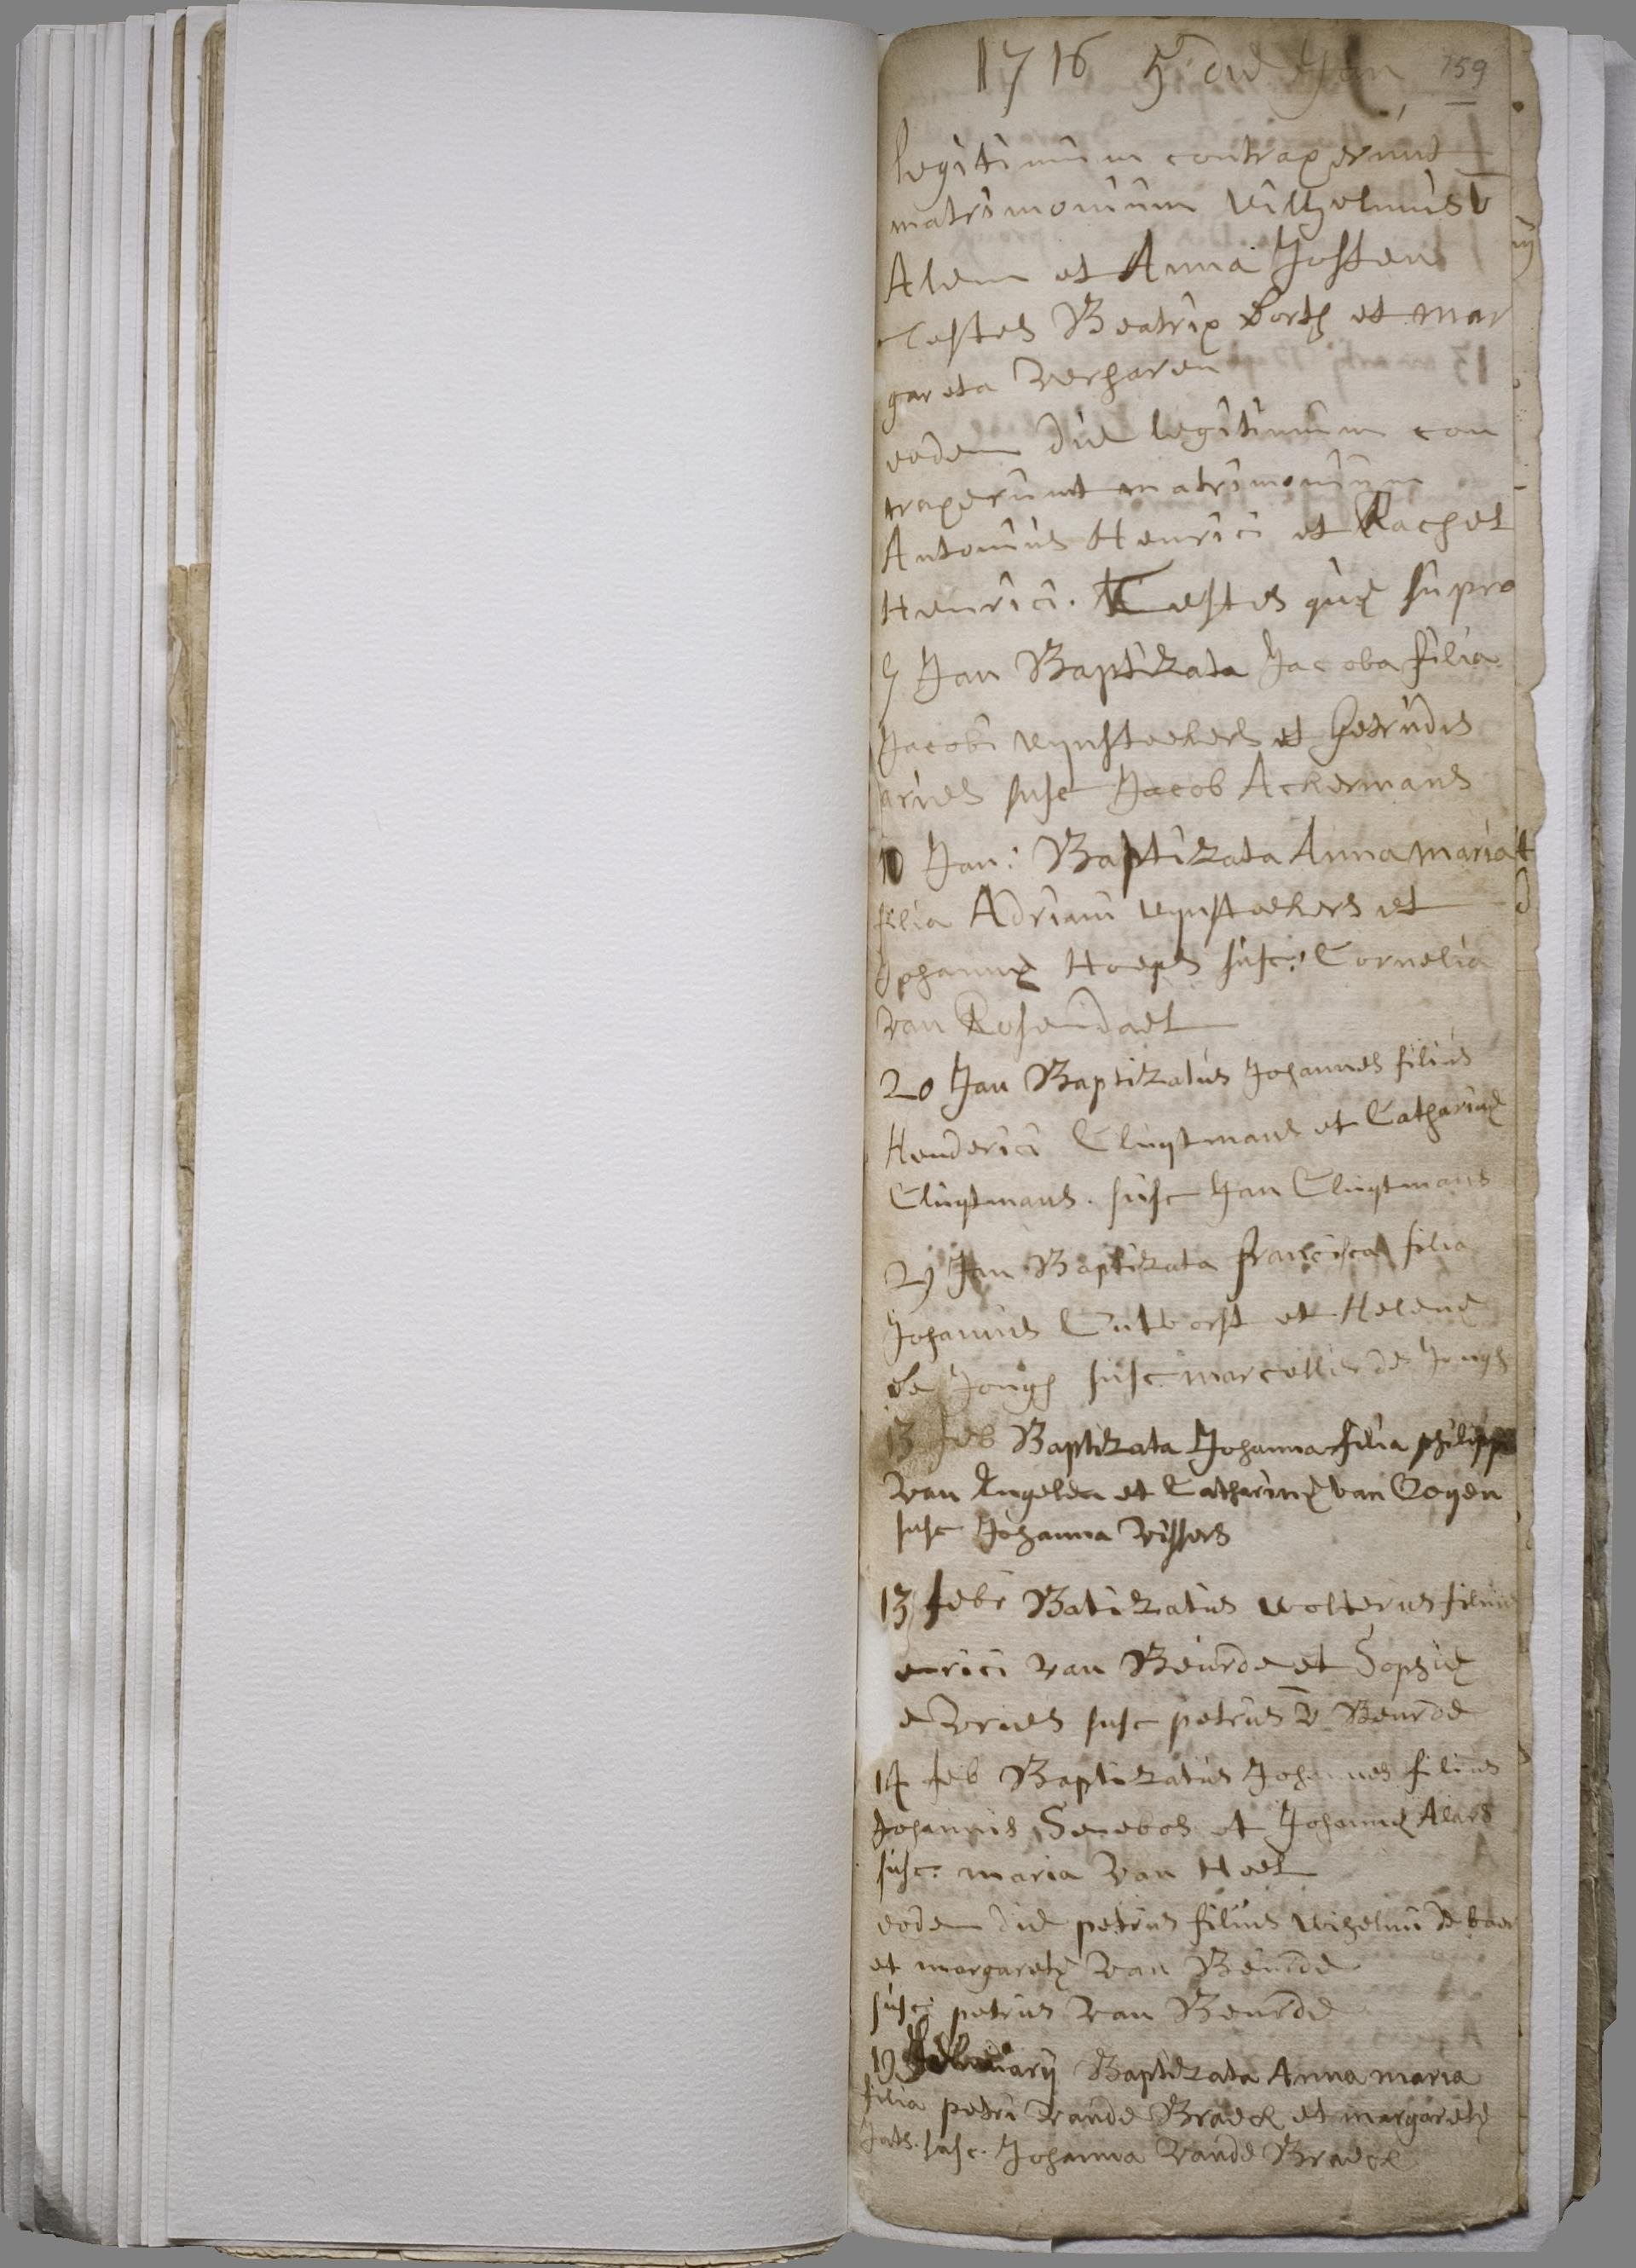 1716 5 die Jan 159
legitimum contraxerunt
matrimonium Wilhelmus V
Alem et Anna Josten
Testes Beatrix Borth et mar
gareta Verharen
eodem die legitimum con
traxerunt matrimonium
Antonius Henrici et Rachel
Henrici. Testes quę supra
Jan Baptizata Jacoba filia
Jacobi wijnstekers et Getrudis
aries susc Jacob Ackermans
10 Jan: Baptizata Anna maria
filia Adriani wijnstekers et
Johannę Hoeps susc: Cornelia
van Rosendael
20 Jan Baptizatus Johannes filius
Henderici Cluytmans et Catharinę
Cluytmans. susc Jan Cluytmans
Jan Baptizata francisca filia
Johannis Cutvorst et Helenę
de Jongh susc marcellis de Jongh
13 feb Baptizata Johanna filia philippi
van Engelen et Catharinę van Goyen
susc Johanna vissers
13 febr Batizatus wolterus filius
enrici van Beurde et Sophię
e Vries susc petrus v Beurde
14 feb Baptizatus Johannes filius
Johannis Senebos et Johannę Alars
susc: maria van Heel
eodem die petrus filius wihelmi de baer
et margaretę van Beurde
susc: petrus van Beurde
19 februarij Baptizata Anna maria
filia petri vande Braeck et margaretę
susc. Johanna vande Braeck